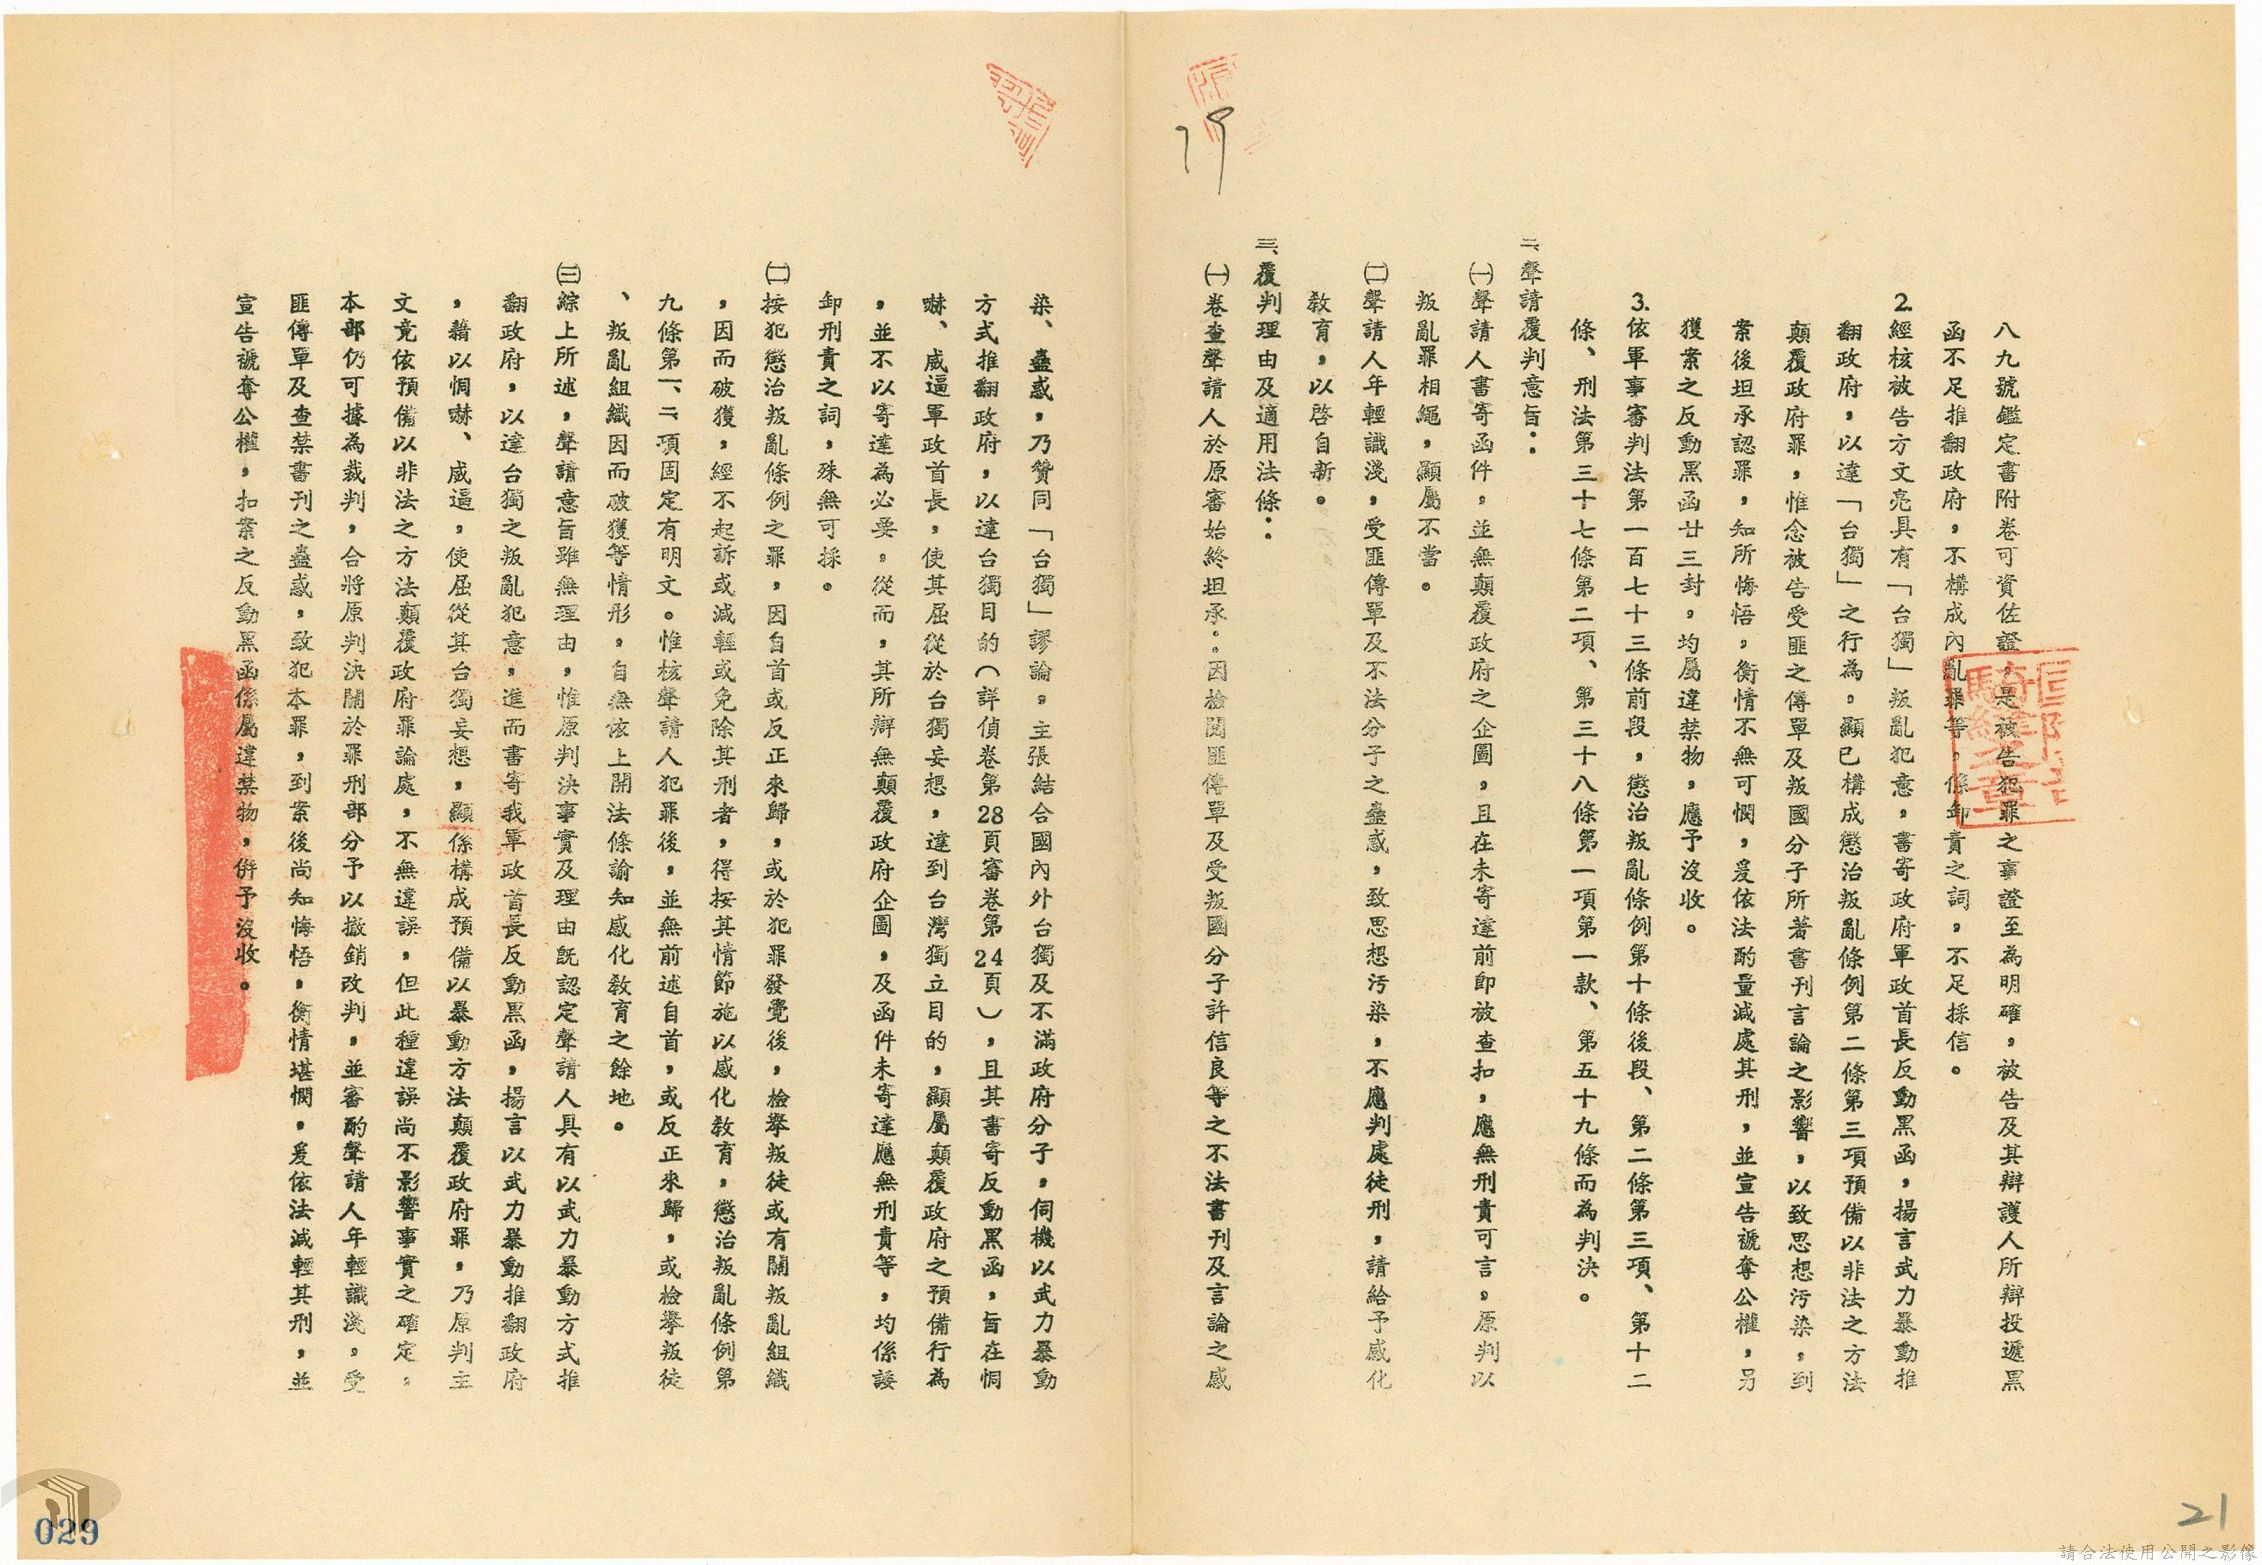 八九號鑑定書附卷可資佐證，是被告犯罪之事證至為明確。被告及其辯護人所辯投遞黑
函不足推翻政府，不構成內亂罪等。係卸責之詞，不足採信。
2.經核被告方文亮具有「台獨」叛亂犯意，書寄政府軍政首長反動黑函，揚言武力暴動推
翻政府，以達「台獨」之行為。顯已構成懲治叛亂條例第二條第三項預備以非法之方法
顛覆政府罪，惟念被告受匪之傳單及叛國分子所著書刊言論之影響，以致思想污染，到
案後坦承認罪，知所悔悟，衡情不無可憫，爰依法酌量減處其刑，並宣告褫奪公權，另
獲案之反動黑函廿三封，均屬違禁物，應予沒收。
3.依軍事審判法第一百七十三條前段，懲治叛亂條例第十條後段、第二條第三項、第十二
條、刑法第三十七條第二項、第三十八條第一項第一款、第五十九條而為判決。
二、聲請覆判意旨：
㈠聲請人書寄函件，並無顛覆政府之企圖，且在未寄達前即被查扣，應無刑責可言。原判以
叛亂罪相繩，顯屬不當。
㈡聲請人年輕識淺，受匪傳單及不法分子之蠱惑，致思想污染，不應判處徒刑，請給予感化
教育，以啓自新。
三、覆判理由及適用法條：
㈠卷查聲請人於原審始終坦承：因檢閱匪傳單及受叛國分子許信良等之不法書刊及言論之感
染、蠱惑，乃贊同「台獨」謬論。主張結合國內外台獨及不滿政府分子，伺機以武力暴動
方式推翻政府，以達台獨目的（詳偵卷第28頁審卷第24頁），且其書寄反動黑函，旨在恫
嚇、威逼軍政首長，使其屈從於台獨妄想，達到台灣獨立目的，顯屬顛覆政府之預備行為
，並不以寄達為必要。從而，其所辯無顛覆政府企圖，及函件未寄達應無刑責等，均係諉
卸刑責之詞，殊無可採。
㈡按犯懲治叛亂條例之罪，因自首或反正來歸，或於犯罪發覺後，檢舉叛徒或有關叛亂組織
，因而破獲，經不起訴或減輕或免除其刑者，得按其情節施以感化教育，懲治叛亂條例第
九條第一、二項固定有明文。惟核聲請人犯罪後，並無前述自首，或反正來歸，或檢舉叛徒
、叛亂組織因而破獲等情形，自無依上開法條諭知感化教育之餘地。
㈢綜上所述，聲請意旨雖無理由，惟原判決事實及理由既認定聲請人具有以武力暴動方式推
翻政府，以達台獨之叛亂犯意，進而書寄我軍政首長反動黑函，揚言以武力暴動推翻政府
，藉以恫嚇、威逼，使屈從其台獨妄想，顯係構成預備以暴動方法顛覆政府罪，乃原判主
文竟依預備以非法之方法顛覆政府罪論處，不無違誤，但此種違誤尚不影響事實之確定，
本部仍可據為裁判，合將原判決關於罪刑部分予以撤銷改判，並審酌聲請人年輕識淺，受
匪傳單及查禁書刊之蠱惑，致犯本罪，到案後尚知悔悟，衡情堪憫，爰依法減輕其刑，並
宣告褫奪公權，扣案之反動黑函係屬違禁物，併予沒收。
騎縫之章
029
21
請合法使用公開之影像